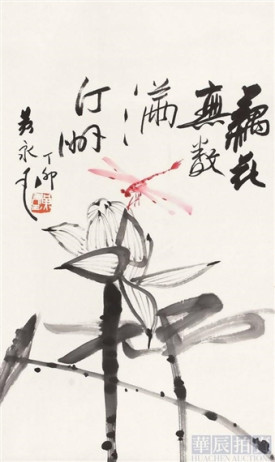 藕花
無數
滿
汀洲
丁卯
黃永玉
華辰拍賣
HUACHEN AUCTIONS